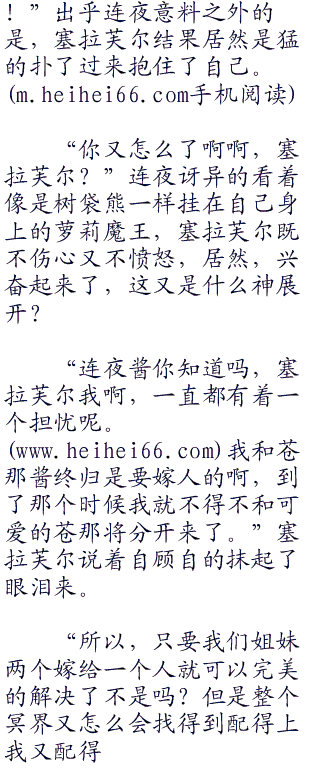 ！”出乎连夜意料之外的
是，塞拉芙尔结果居然是猛
的扑了过来抱住了自己。
(m.heihei66.com手机阅读)
“你又怎么了啊啊，塞
拉芙尔？”连夜讶异的看着
像是树袋熊一样挂在自己身
上的萝莉魔王，塞拉芙尔既
不伤心又不愤怒，居然，兴
奋起来了，这又是什么神展
开？
“连夜酱你知道吗，塞
拉芙尔我啊，一直都有着一
个担忧呢。
(www.heihei66.com)我和苍
那酱终归是要嫁人的啊，到
了那个时候我就不得不和可
爱的苍那将分开来了。”塞
拉芙尔说着自顾自的抹起了
眼泪来。
“所以，只要我们姐妹
两个嫁给一个人就可以完美
的解决了不是吗？但是整个
冥界又怎么会找得到配得上
我又配得